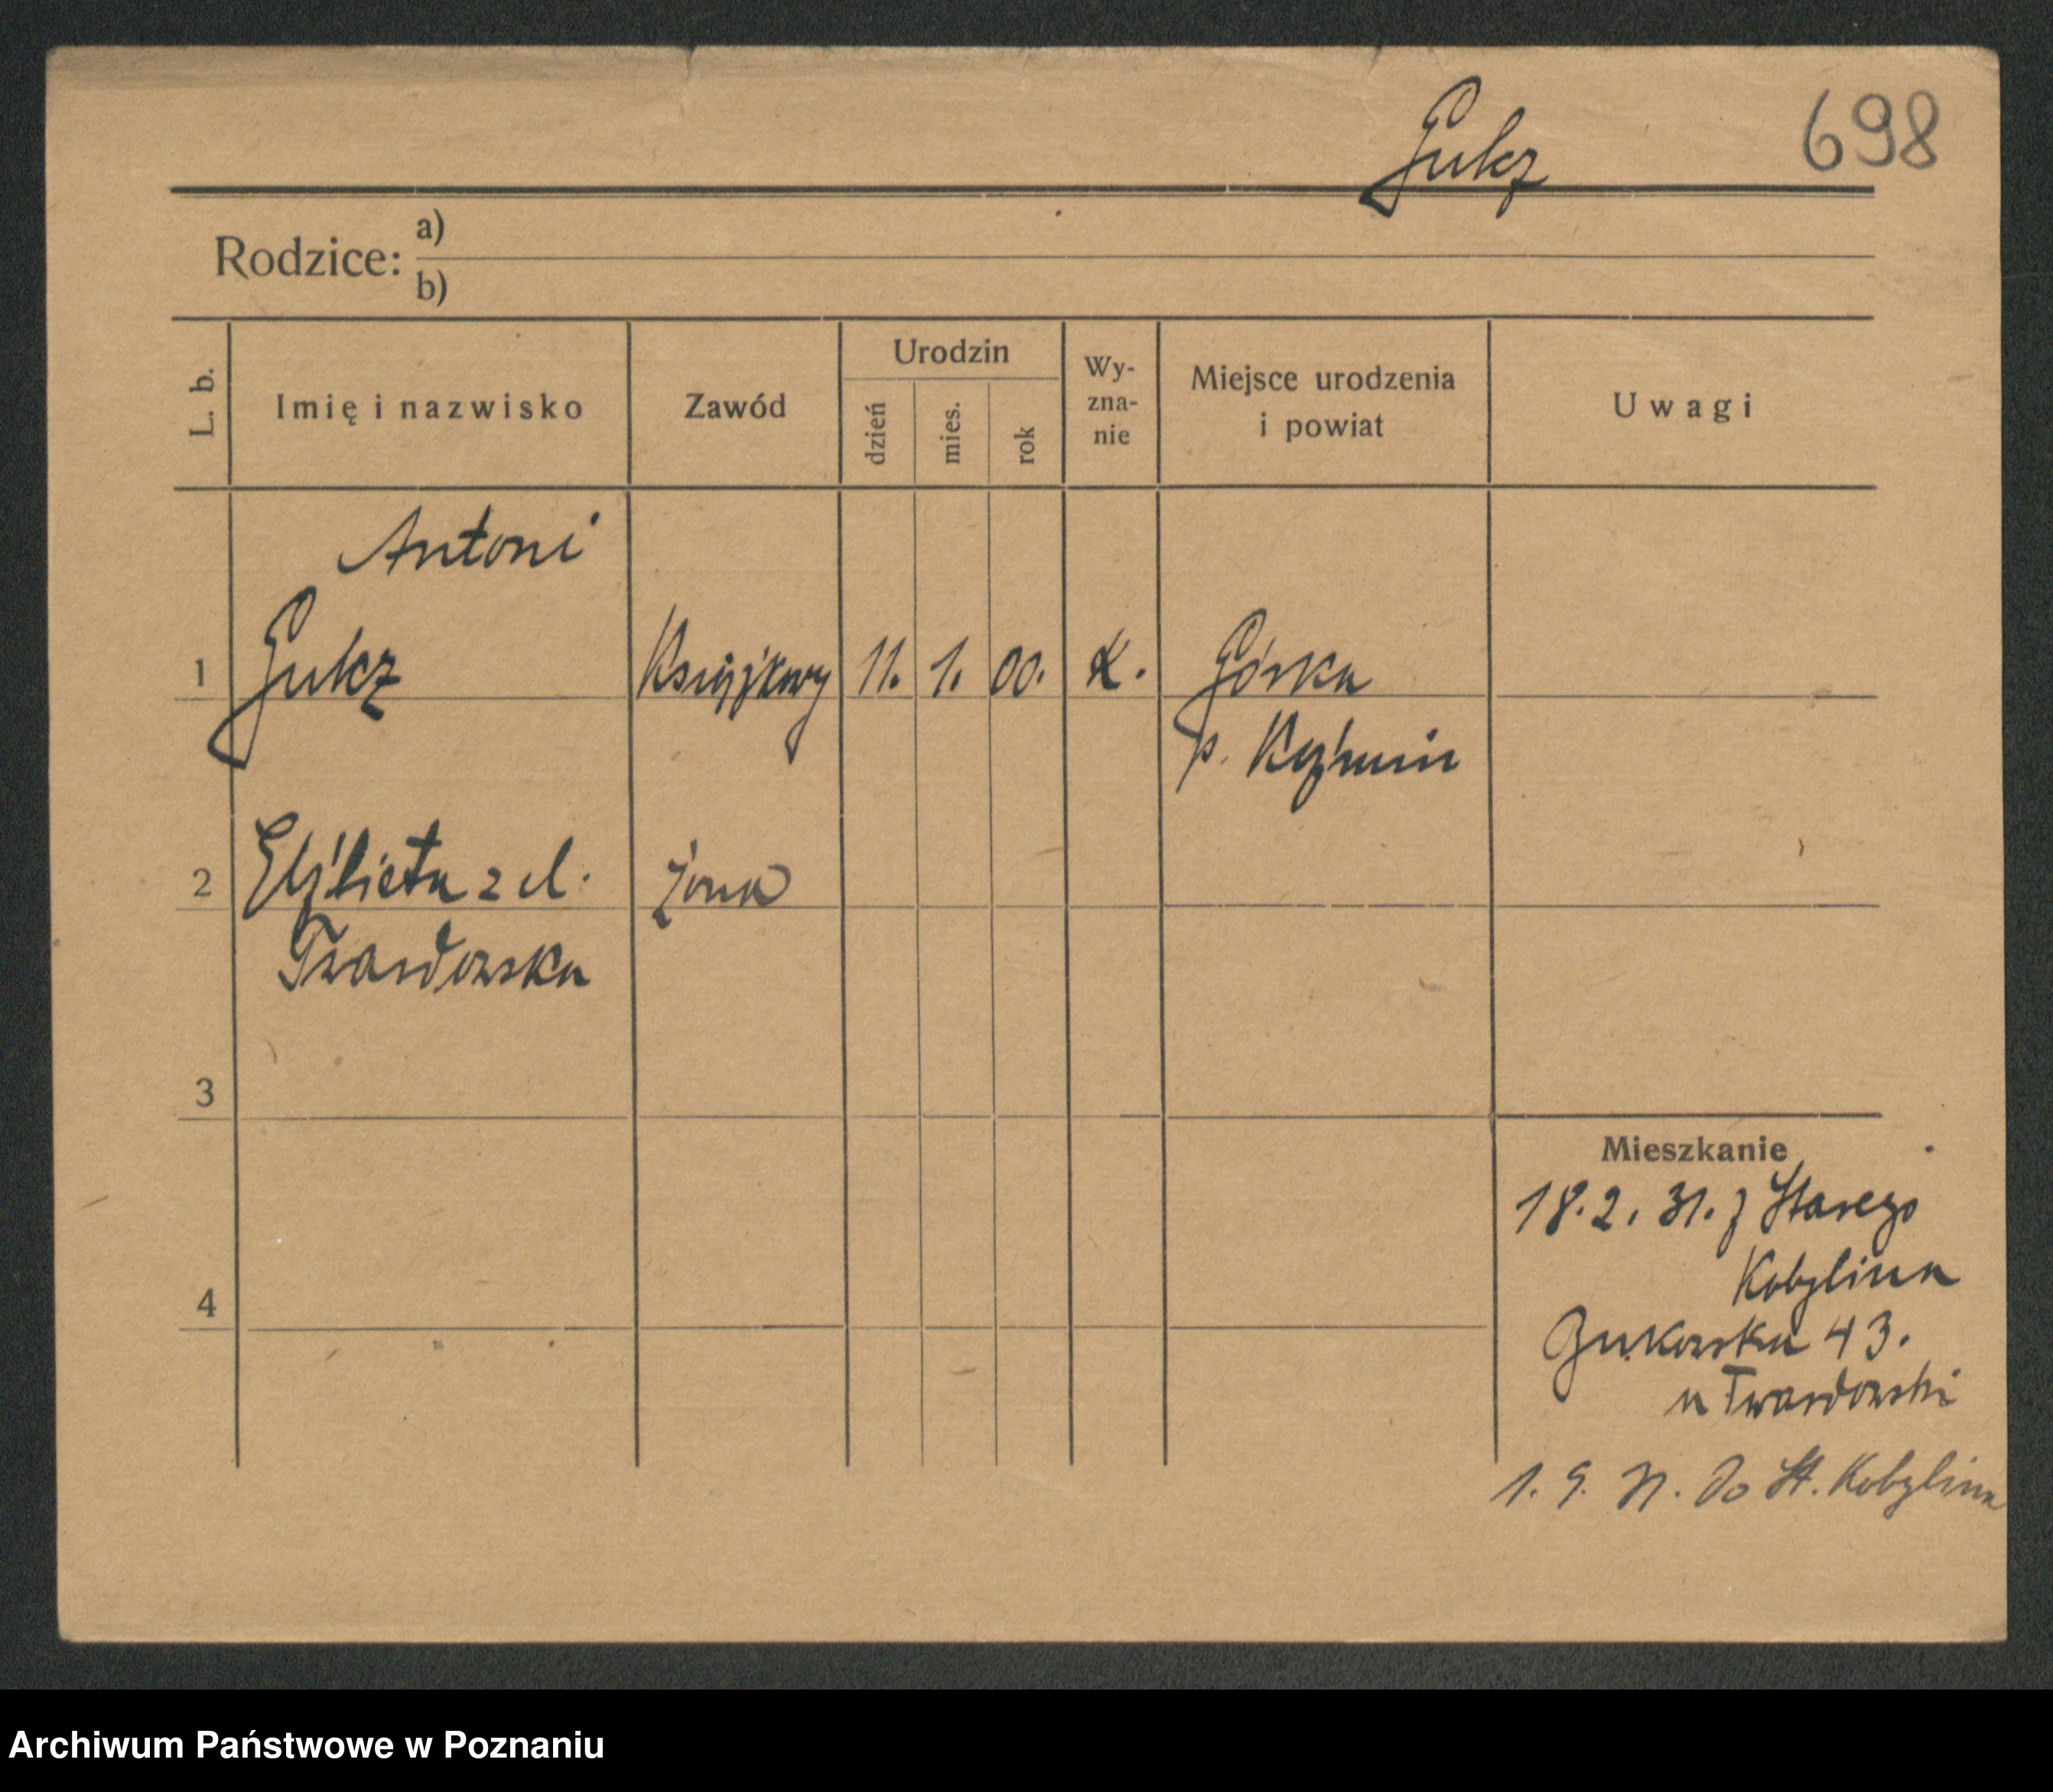 698
Gulcz
Rodzice: a)
b)
L. b.
Imię i nazwisko
Zawód
Urodzin
dzień
mies.
rok
Wy-
zna-
nie
Miejsce urodzenia
i powiat
Uwagi
Antoni
1 Gulcz Książkowy 11. 1. 00. K. Górka
p. Koźmin
2 Elżbieta z d. żona
Twardowska
3
4
Mieszkanie
18.2.31. z Starego
Kobylina
43.
u Twardowski
1. 9. 31. do St. Kobylina
Archiwum Państwowe w Poznaniu